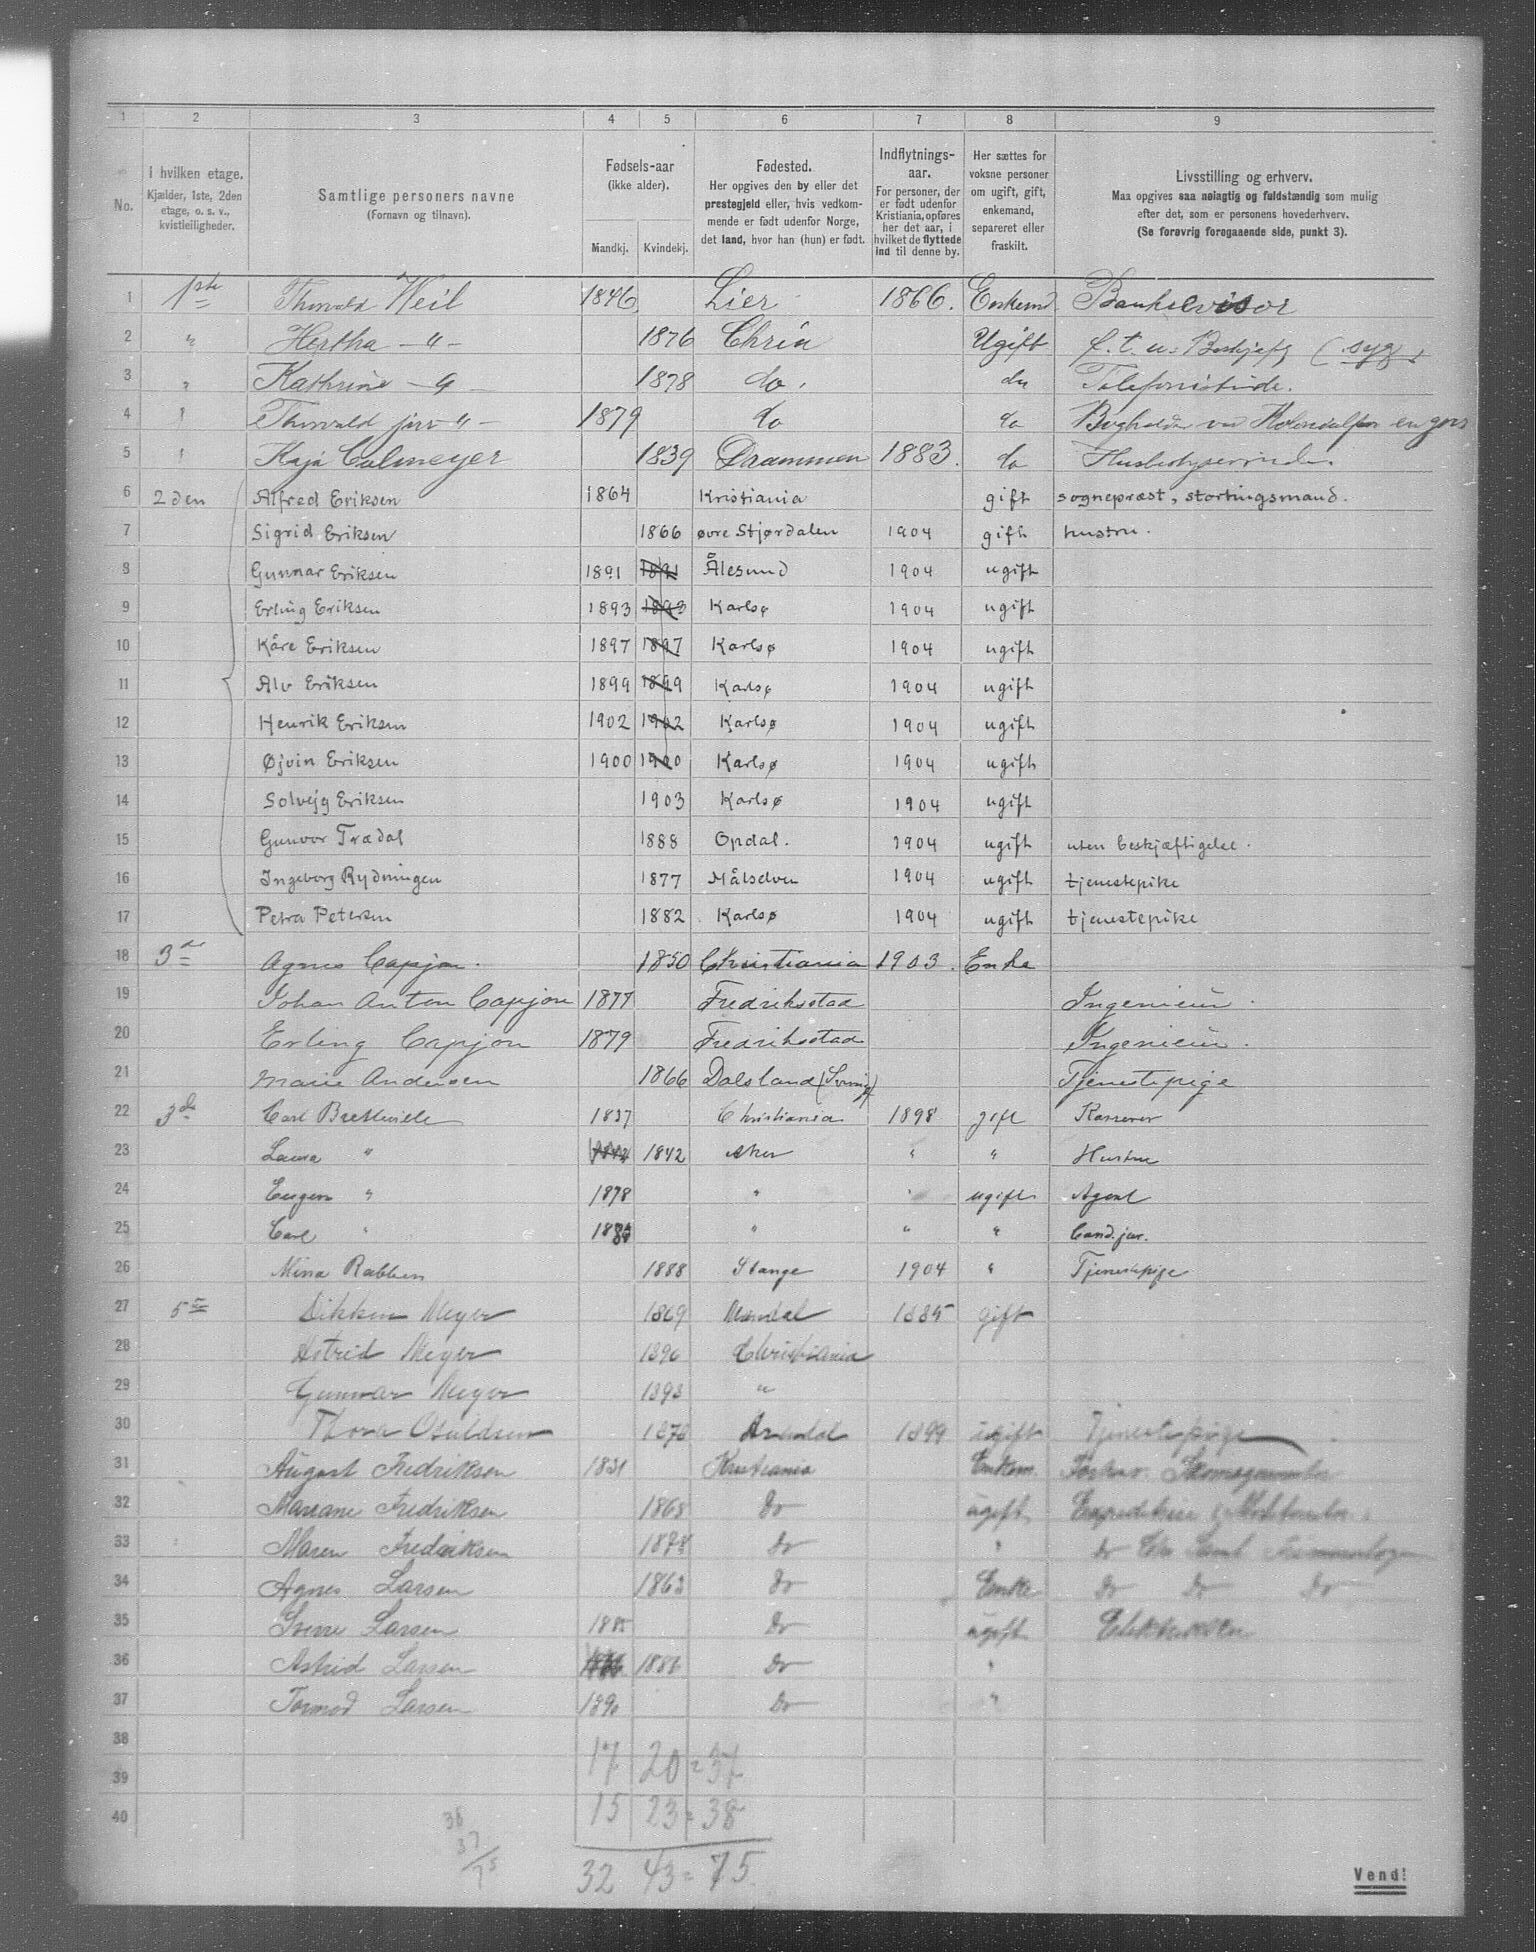 1 2 3 4 5 6 7 8 9
No. I hvilken etage. Kjælder, 1ste, 2den etage, o. s. v., kvistleiligheder. Samtlige personers navne (Fornavn og tilnavn). Fødsels-aar (ikke alder). Mandkj. Kvindekj. Fødested. Her opgives den by eller det prestegjeld eller, hvis vedkommende er født udenfor Norge, det land, hvor han (hun) er født. Indflytnings-aar. For personer, der er født udenfor Kristiania, opføres her det aar, i hvilket de flyttede ind til denne by. Her sættes for voksne personer om ugift, gift, enkemand, separeret eller fraskilt. Livsstilling og erhverv. Maa opgives saa nøiagtig og fuldstændig som mulig efter det, som er personens hovederhverv. (Se forøvrig foregaaende side, punkt 3).
1 1ste Thorvald Weil 1846 Lier 1866. Enkemd Bankrevisor
2 " Hertha -"- 1876 Chria Ugift f. t. u. Beskjæft (syg)
3 " Kathrine -"- 1878 do. do Telefonistinde.
4 " Thorvald junr -"- 1879 do do Bogholder ved Kolonialfor en gros
5 " Kaja Culmeyer 1839 Drammen 1883. do Husbestyrerinde
6 2den Alfred Eriksen 1864 Kristiania gift sognepræst, stortingsmand.
7 Sigrid Eriksen 1866 øvre Stjørdalen 1904 gift hustru.
8 Gunnar Eriksen 1891 1891 Ålesund 1904 ugift
9 Erling Eriksen 1893 1893 Karlsø 1904 ugift
10 Kåre Eriksen 1897 1897 Karlsø 1904 ugift
11 Alv Eriksen 1899 1899 Karlsø 1904 ugift
12 Henrik Eriksen 1902 1902 Karlsø 1904 ugift
13 Øjvin Eriksen 1900 1900 Karlsø 1904 ugift
14 Solvejg Eriksen 1903 Karlsø 1904 ugift
15 Gunvor Trædal 1888 Opdal. 1904 ugift uten beskjæftigelse.
16 Ingeborg Rydningen 1877 Målselven 1904 ugift tjenestepike
17 Petra Petersen 1882 Karlsø 1904 ugift tjenestepike
18 3de Agnes Capjon. 1850 Christiania 1903. Enke
19 Johan Anton Capjon 1877 Fredriksstad Ingeniør.
20 Erling Capjon 1879 Fredriksstad Ingeniør.
21 Marie Andersen 1866 Dalsland (Sverrig) Tjenestepige
22 3de Carl Bretteville 1837 Christiania 1898 gift Kasserer
23 Laura " 1842 Aker " " Hustru
24 Eugen " 1878 " " ugift Agent
25 Carl " " " " Cand. jur.
26 Mina Rabben 1888 Stange 1904 " Tjenestepige
27 5te Dikken Meyer 1869 Mandal 1885 gift
28 Astrid Meyer 1890 Christiania
29 Gunnar Meyer 1893 "
30 Thora Osuldsen 1878 Arendal 1899 ugift Tjenestepige
31 August Fredriksen 1831 Kristiania Enkem.
32 Mariane Fredriksen 1868 Do ugift
33 Maren Fredriksen Do "
34 Agnes Larsen 1863 Do Enke Do Do Do
35 Sverre Larsen 1885 Do ugift
36 Astrid Larsen 1886 Do "
37 Tormod Larsen 1890 Do "
38 17 20 = 37
39
40 15 23 = 38
38
37
75
32 43 = 75
Vend!